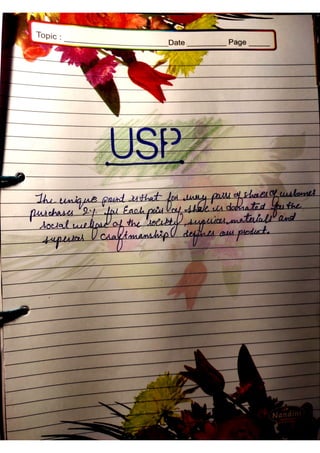 Topic :
Date Page
USP
The unique point is that for every pair of shoes if customer
purchases 2% for Each pair of shoe is donated for the
social welfare of the society, superior materials and
superior Craftmanship defines our product.
Nandini